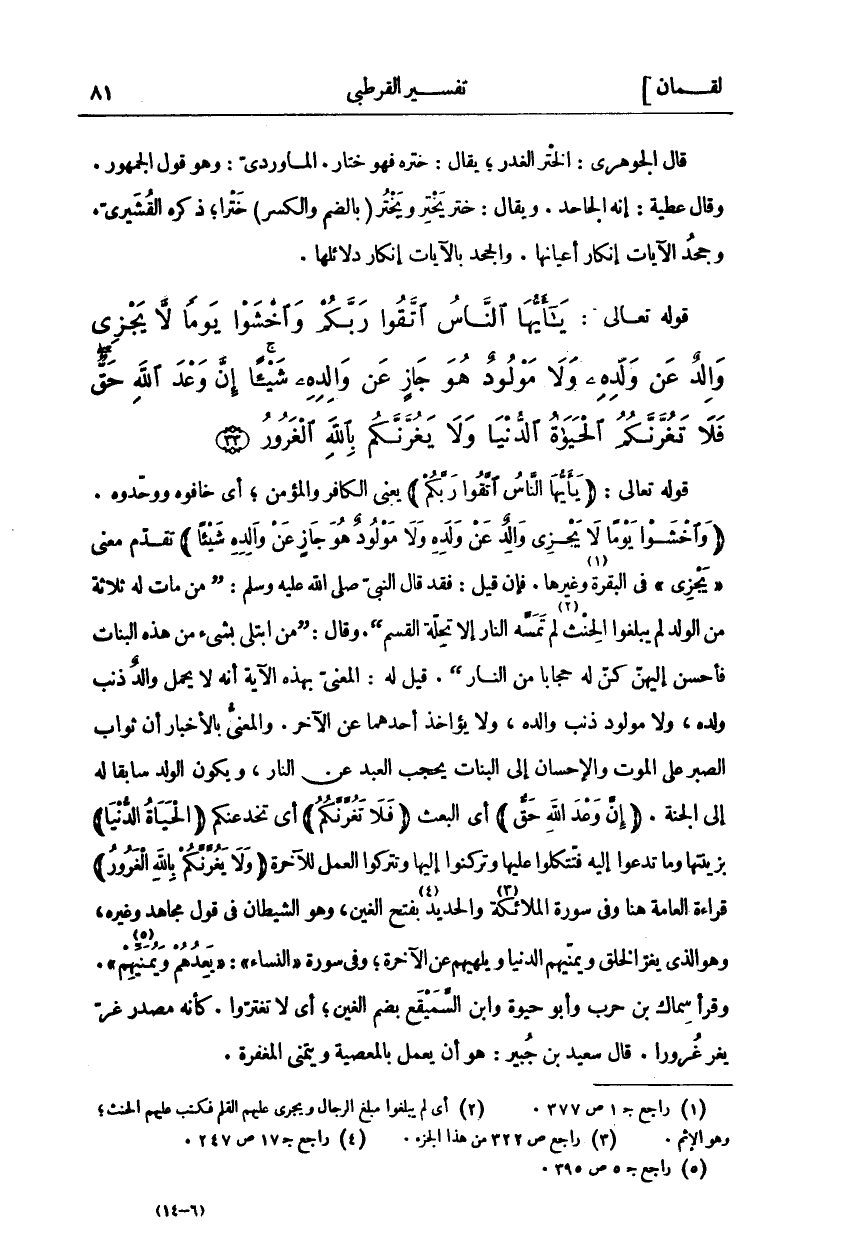 لقـــمان ] تفســـير القرطبى ٨١
قال الجوهرى : الخَتْر الغدر ؛ يقال : ختره فهو ختار . المـاوردىّ : وهو قول الجمهور .
وقال عطية : إنه الجاحد . ويقال : ختر يَخْتِر ويَخْتُر ( بالضم والكسر ) خَتْرا ؛ ذكره القُشَيرىّ .
وجحدُ الآيات إنكار أعيانها . والجحد بالآيات إنكار دلائلها .
قوله تعـالى : يَـٰٓأَيُّهَا ٱلنَّاسُ ٱتَّقُوا رَبَّكُمْ وَٱخْشَوْا يَوْمًا لَّا يَجْزِى
وَالِدٌ عَن وَلَدِهِۦ وَلَا مَوْلُودٌ هُوَ جَازٍ عَن وَالِدِهِۦ شَيْـًٔا ۚ إِنَّ وَعْدَ ٱللَّهِ حَقٌّ ۖ
فَلَا تَغُرَّنَّكُمُ ٱلْحَيَوٰةُ ٱلدُّنْيَا وَلَا يَغُرَّنَّكُم بِٱللَّهِ ٱلْغَرُورُ ﴿٣٣﴾
قوله تعالى : ﴿ يَـٰأَيُّهَا النَّاسُ ٱتَّقُوا رَبَّكُمْ ﴾ يعنى الكافر والمؤمن ؛ أى خافوه ووحّدوه .
﴿ وَٱخْشَـوْا يَوْمًا لَا يَجْـزِى وَالِدٌ عَنْ وَلَدِهِ وَلَا مَوْلُودٌ هُوَ جَازٍ عَنْ وَالِدِهِ شَيْئًا ﴾ تقـدّم معنى
« يَجْزِى » فى البقرة (١) وغيرها . فإن قيل : فقد قال النبىّ صلى الله عليه وسلم : ” من مات له ثلاثة
من الولد لم يبلغوا الحِنْث (٢) لم تَمَسَّه النار إلا تحِلّة القسم “ . وقال : ” من ابتلى بشىء من هذه البنات
فأحسن إليهنّ كنّ له حجابا من النـار “ . قيل له : المعنىّ بهذه الآية أنه لا يحمل والدٌ ذنب
ولده ، ولا مولود ذنب والده ، ولا يؤاخذ أحدهما عن الآخر . والمعنىُّ بالأخبار أن ثواب
الصبر على الموت والإحسان إلى البنات يحجب العبد عن النار ، ويكون الولد سابقا له
إلى الجنة . ﴿ إِنَّ وَعْدَ اللهِ حَقٌّ ﴾ أى البعث ﴿ فَلَا تَغُرَّنَّكُمُ ﴾ أى تخدعنكم ﴿ الْحَيَاةُ الدُّنْيَا ﴾
بزينتها وما تدعوا إليه فتتكلوا عليها وتركنوا إليها وتتركوا العمل للآخرة ﴿ وَلَا يَغُرَّنَّكُمْ بِاللهِ الْغَرُورُ ﴾
قراءة العامة هنا وفى سورة الملائكة (٣) والحديد (٤) بفتح الغين ، وهو الشيطان فى قول مجاهد وغيره ،
وهو الذى يغرّ الخلق ويمنّيهم الدنيا ويلهيهم عن الآخرة ؛ وفى سورة « النساء » : « يَعِدُهُمْ وَيُمَنِّيهِمْ (٥) » .
وقرأ سِماك بن حرب وأبو حيوة وابن السَّمَيْقَع بضم الغين ؛ أى لا تغترّوا . كأنه مصدر غرّ
يغر غُرورا . قال سعيد بن جُبير : هو أن يعمل بالمعصية ويتمنى المغفرة .
(١) راجع جـ ١ ص ٣٧٧ . (٢) أى لم يبلغوا مبلغ الرجال ويجرى عليهم القلم فيكتب عليهم الحنث ؛
وهو الإثم . (٣) راجع ص ٣٢٢ من هذا الجزء . (٤) راجع جـ ١٧ ص ٢٤٧ .
(٥) راجع جـ ٥ ص ٣٩٥ .
(٦-١٤)